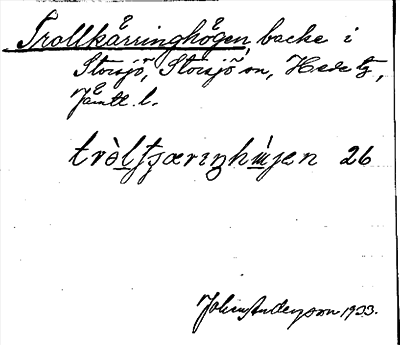 Trollkärringhögen, backe i
Storsjö, Storsjö sn, Hede tg,
Jämtl. l.
tròlʃʃæriŋhɯ́jen 26
Johan Anderson 1933.